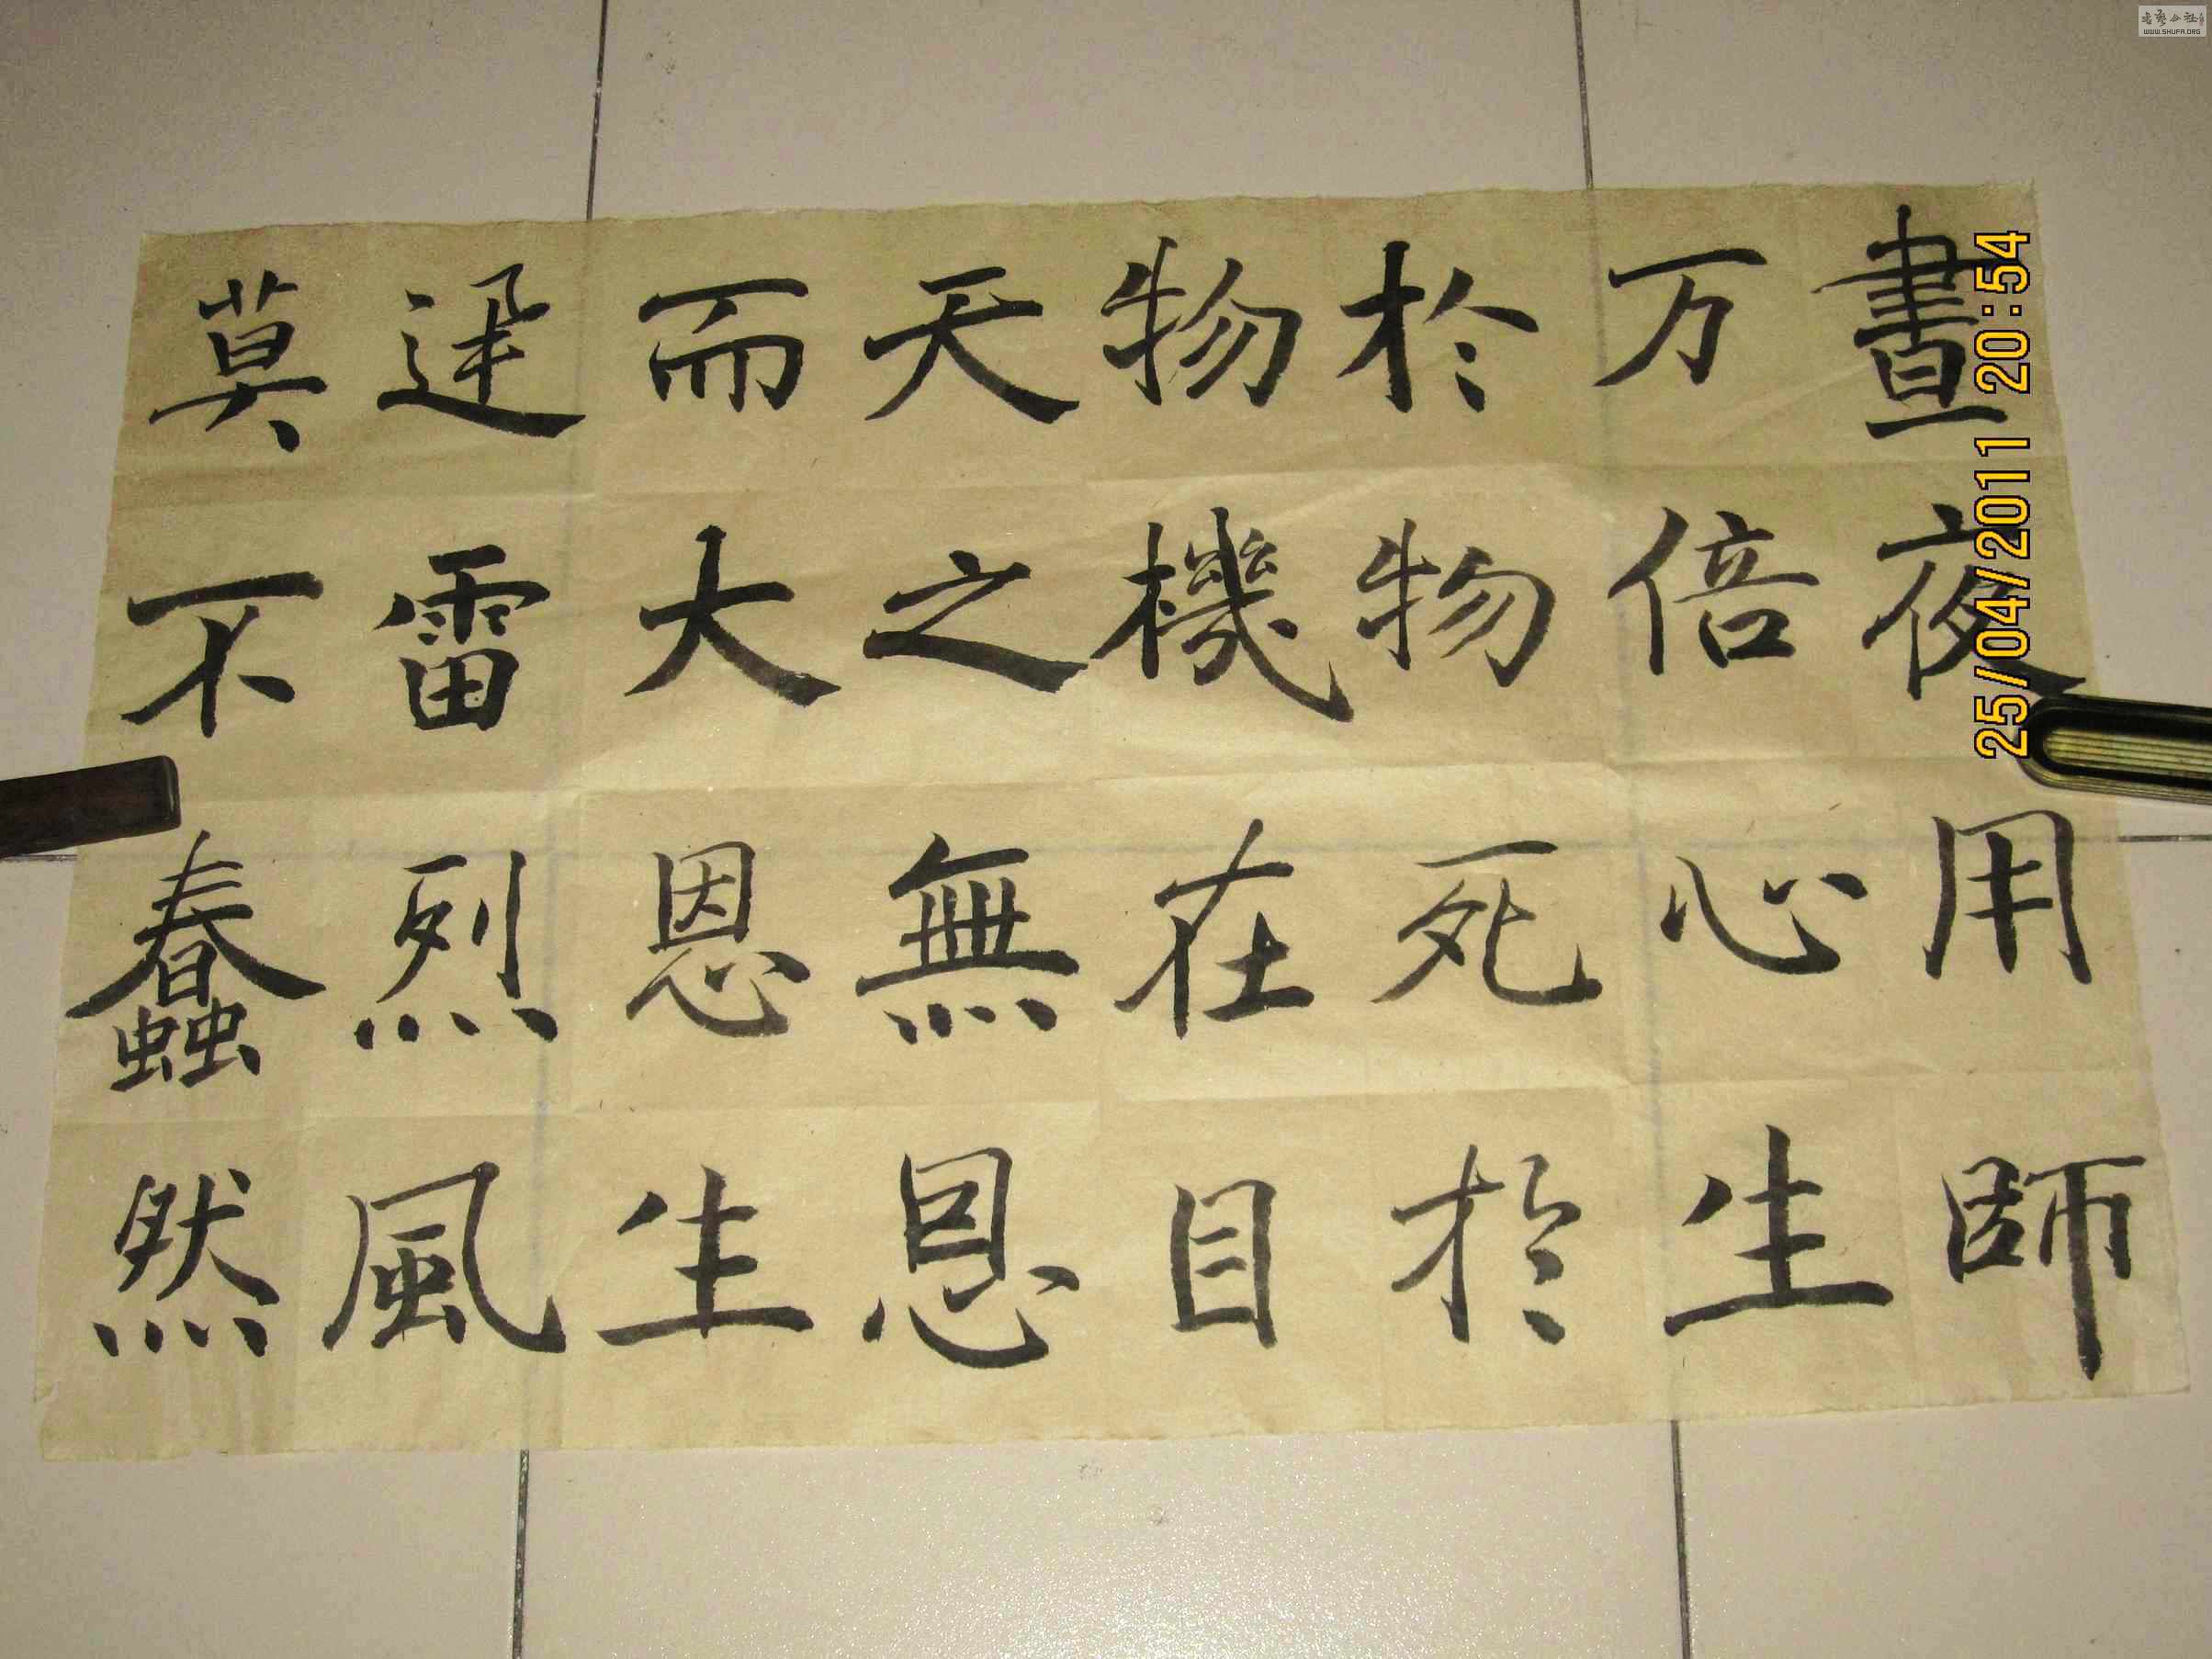 晝夜用師
万倍心生
於物死於
物機在目
天之無恩
而大恩生
迅雷烈風
莫不蠢然
25/04/2011 20:54
书艺公社
WWW.SHUFA.ORG